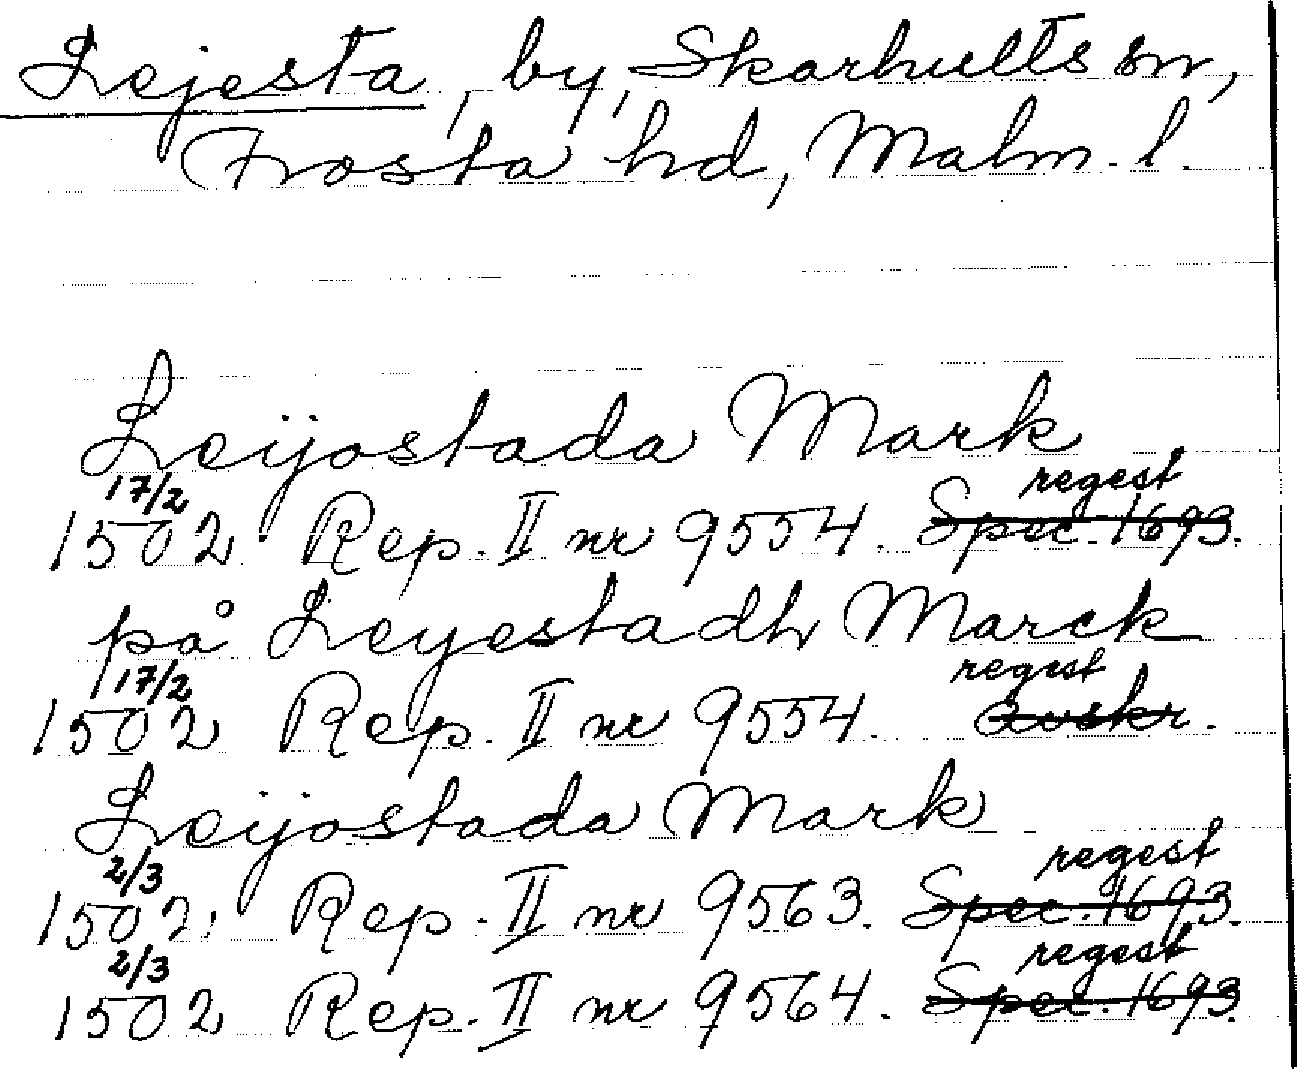 Lejesta, by, Skarhults sn,
Frosta hd, Malm. l.
Leijostada Mark
17/2 regest
1502 Rep. II nr 9554. Spec. 1693.
på Leyestadh Marck
17/2 regest
1502 Rep. II nr 9554. avskr.
Leijostada Mark
2/3 regest
1502. Rep. II nr 9563. Spec. 1693.
2/3 regest
1502 Rep. II nr 9564. Spec. 1693.